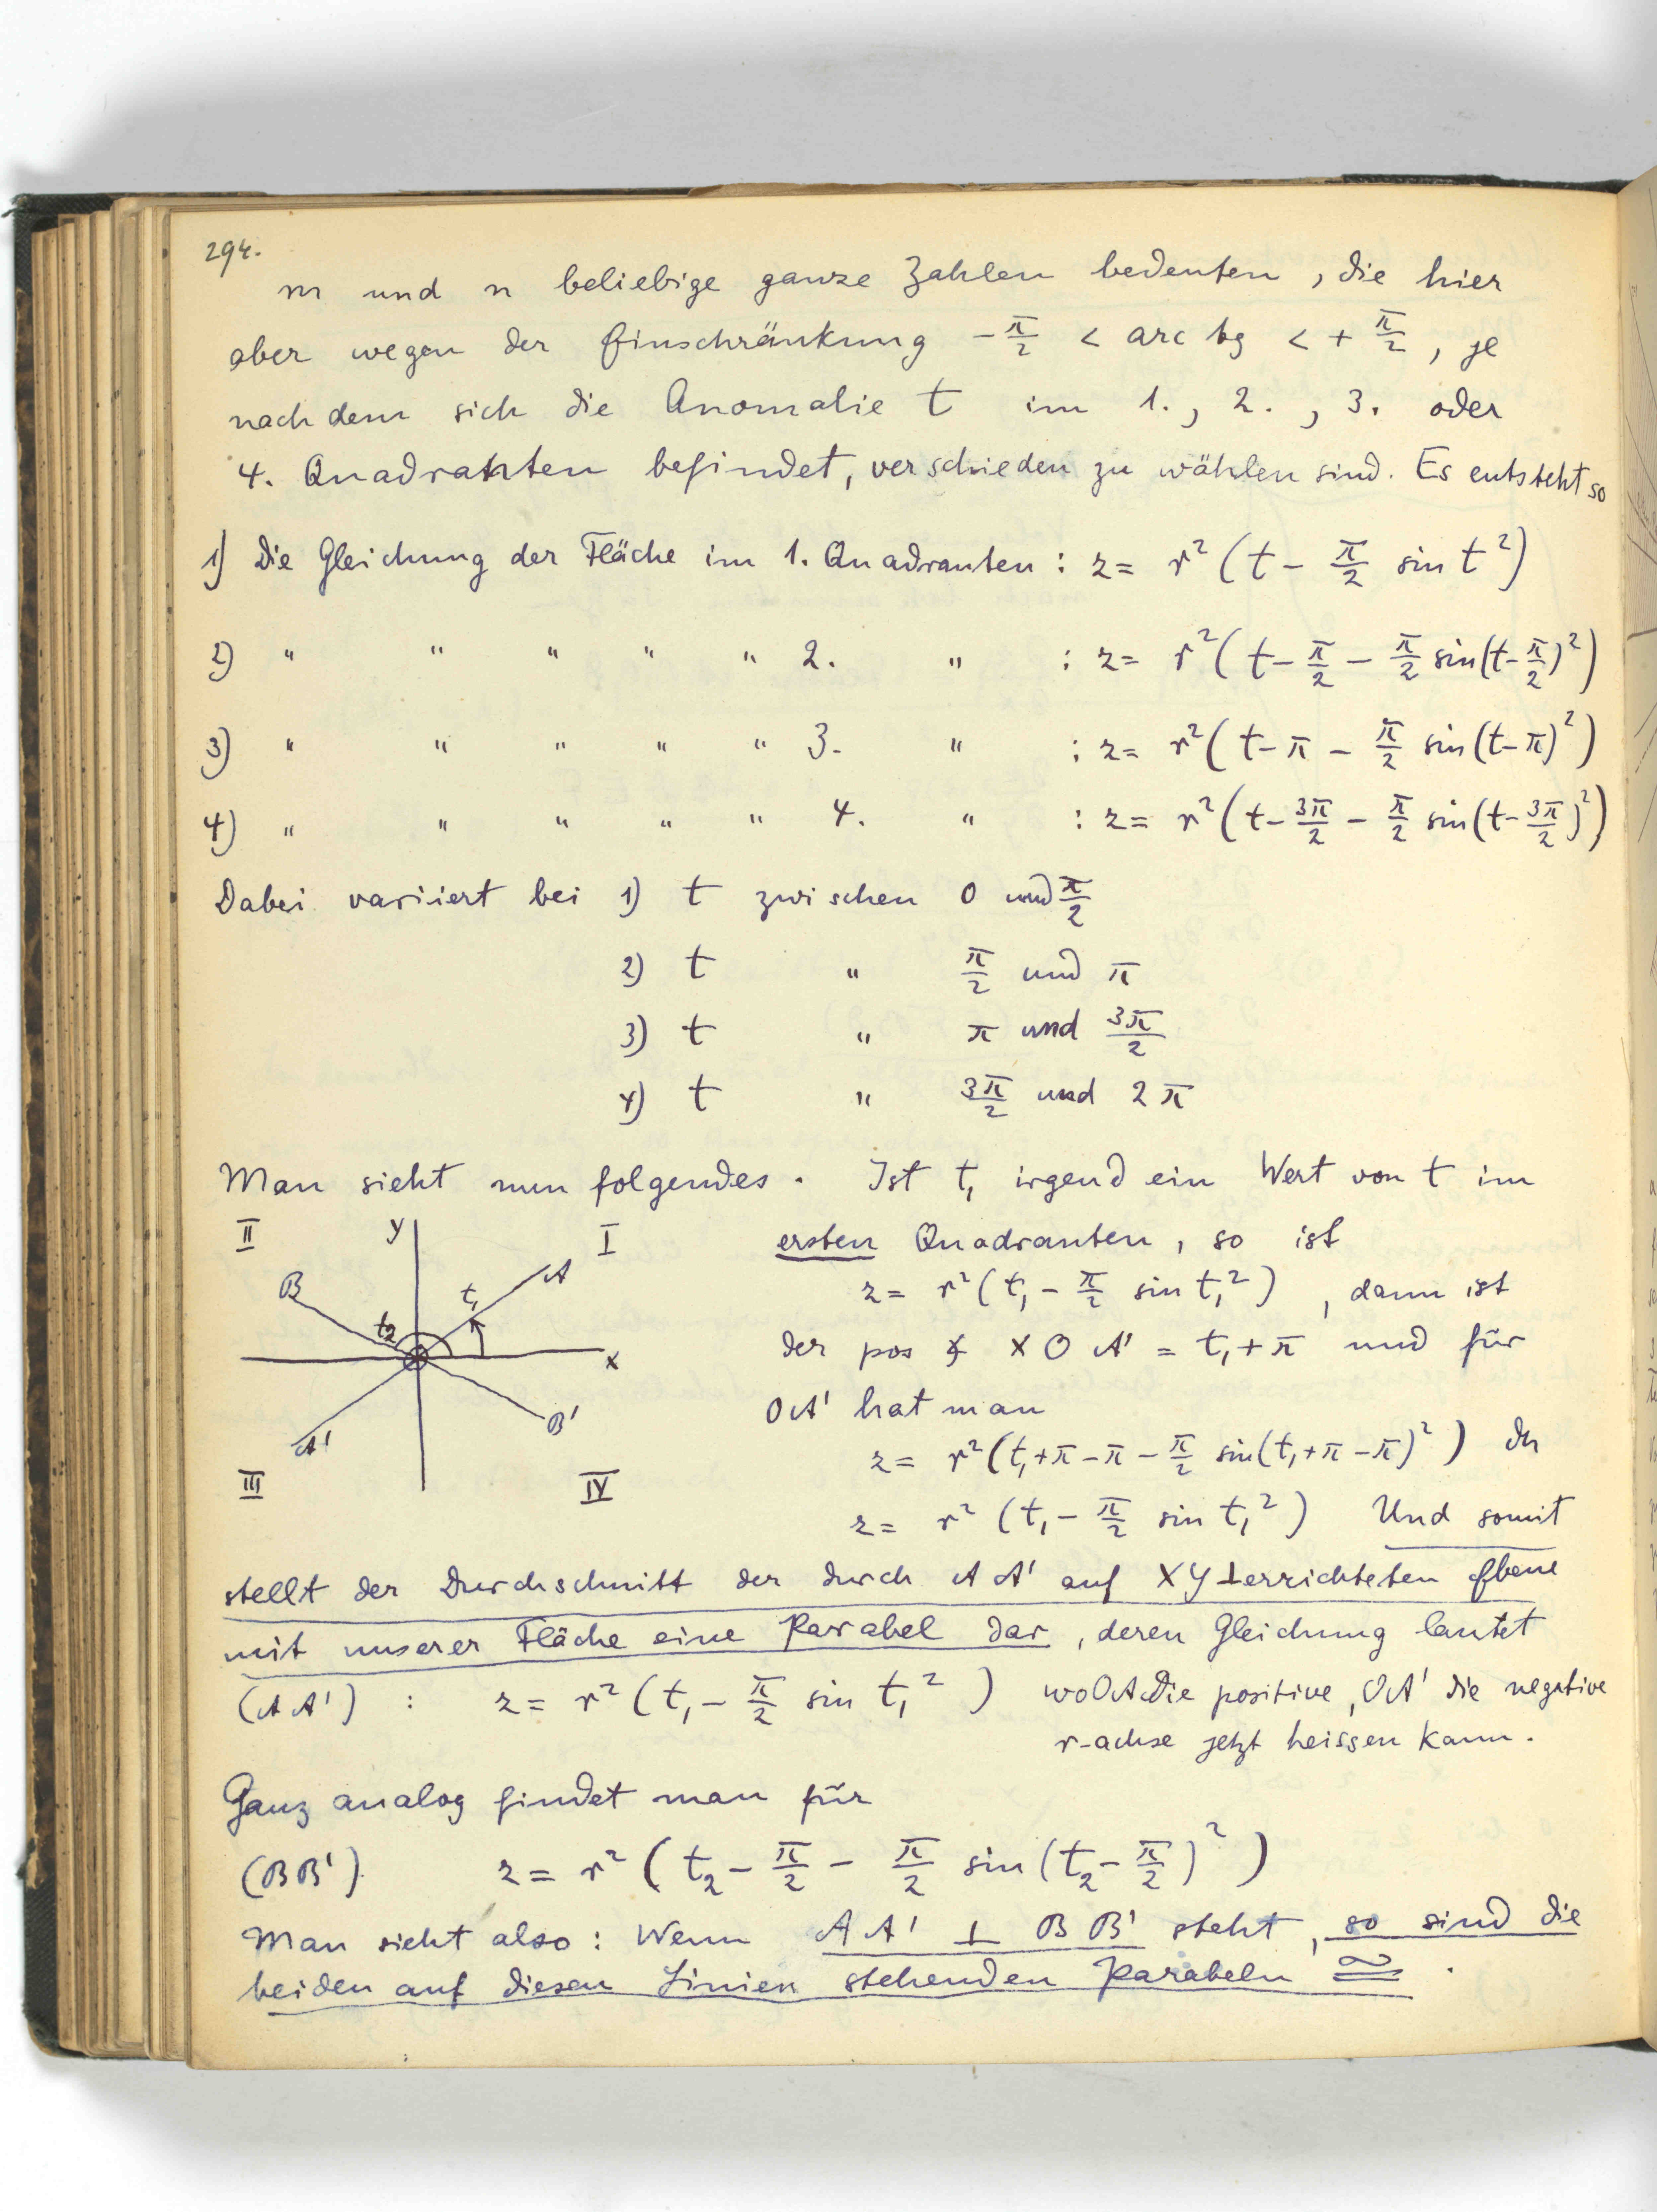 294.
m und n beliebige ganze Zahlen bedeuten, die hier
aber wegen der Einschränkung -π/2 < arc tg < + π/2, je
nachdem sich die Anomalie t im 1., 2., 3. oder
4. Quadranten befindet, verschieden zu wählen sind. Es entsteht so
1) Die Gleichung der Fläche im 1. Quadranten : z = r² (t - π/2 sin t²)
2) " " " " " 2. " : z = r² (t - π/2 - π/2 sin(t - π/2)²)
3) " " " " " 3. " : z = r² (t - π - π/2 sin(t - π)²)
4) " " " " " 4. " : z = r² (t - 3π/2 - π/2 sin(t - 3π/2)²)
Dabei variiert bei 1) t zwischen 0 und π/2
2) t " π/2 und π
3) t " π und 3π/2
4) t " 3π/2 und 2π
Man sieht nun folgendes. Ist t₁ irgend ein Wert von t im
II y I
B A t₁ t₂ x
A' B'
III IV
ersten Quadranten, so ist
z = r² (t₁ - π/2 sin t₁²), dann ist
der pos ∢ XOA' = t₁ + π und für
OA' hat man
z = r² (t₁ + π - π - π/2 sin(t₁ + π - π)²) dh
z = r² (t₁ - π/2 sin t₁²) Und somit
stellt der Durchschnitt der durch AA' auf XY ⊥ errichteten Ebene
mit unserer Fläche eine Parabel dar, deren Gleichung lautet
(AA') : z = r² (t₁ - π/2 sin t₁²) wo OA die positive, OA' die negative
r-achse jetzt heissen kann.
Ganz analog findet man für
(BB') z = r² (t₂ - π/2 - π/2 sin(t₂ - π/2)²)
Man sieht also : Wenn AA' ⊥ BB' steht, so sind die
beiden auf diesen Linien stehenden Parabeln ≅.